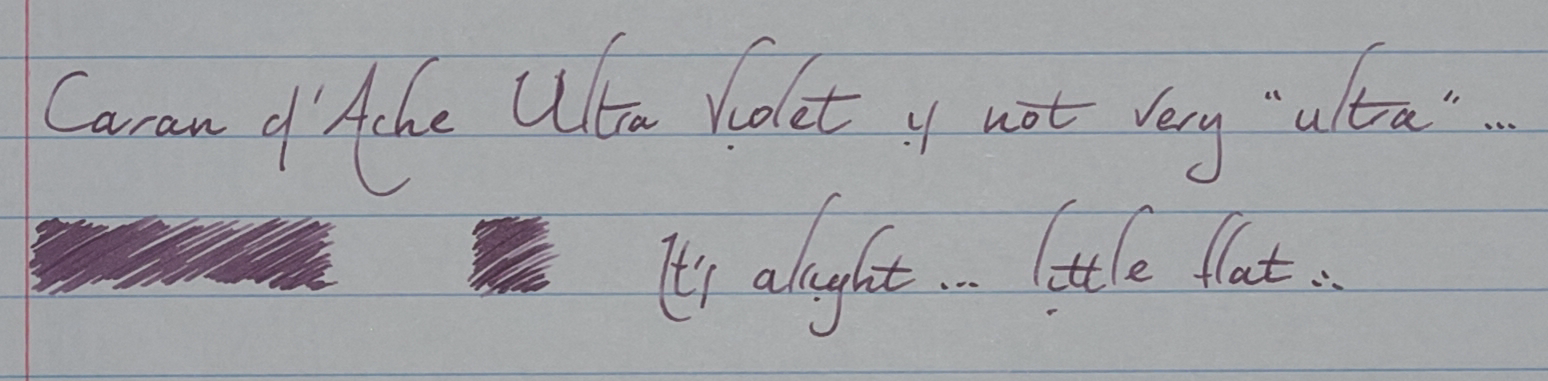 Caran d'Ache Ultra Violet is not very "ultra"...
It's alright... little flat...